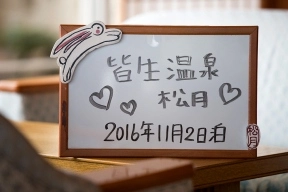 皆生温泉
松月
2016年11月2日泊
松月